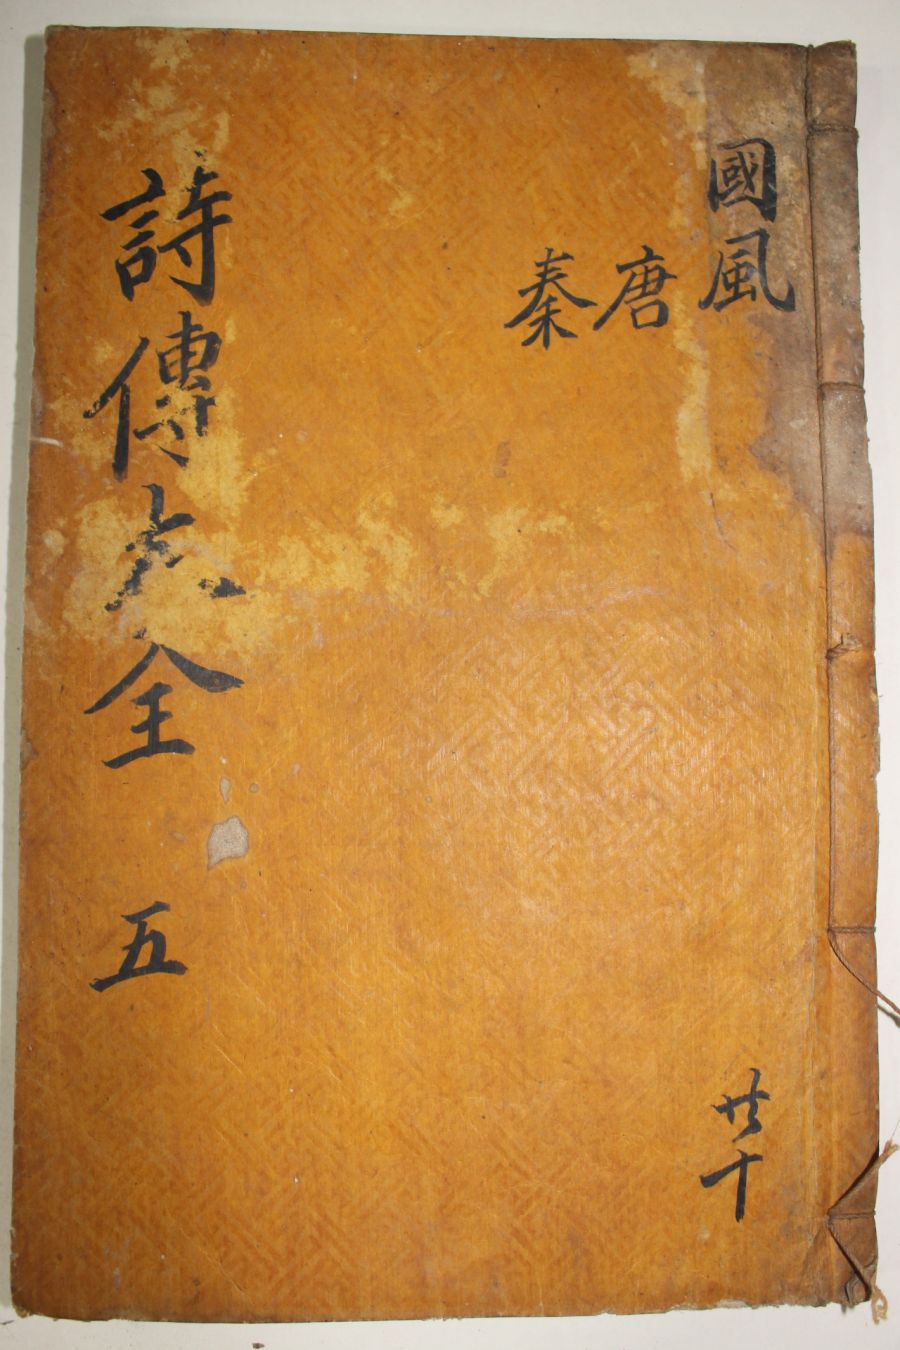 國風
唐
秦
共十
詩傳大全 五